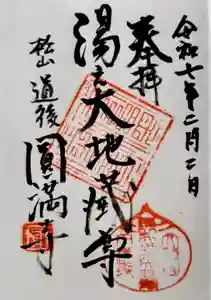 令和七年二月二日
奉拝
湯之大地蔵尊
松山 道後 圓満寺